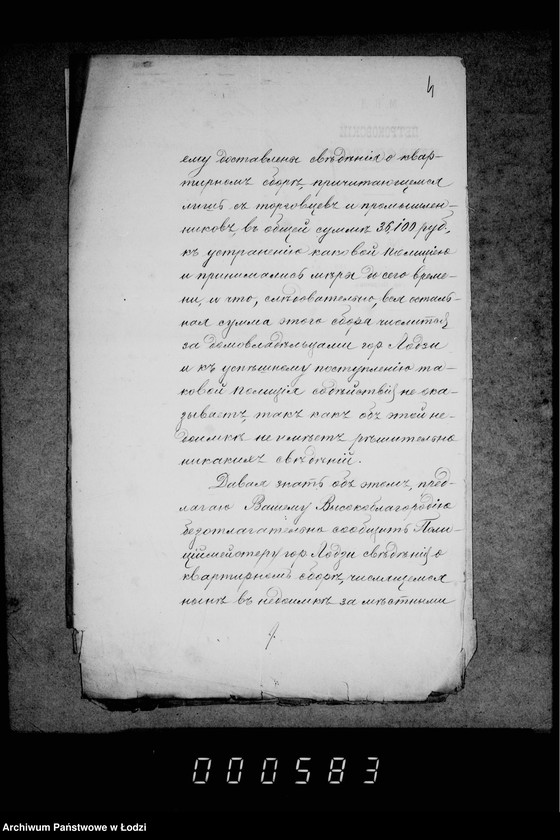 4
ПЕТРОКОВСКІЙ
ему доставлены свѣдѣнія о квар-
тирномъ сборѣ, причитающемся
лишь съ торговцевъ и промышлен-
никовъ, въ общей суммѣ 36,100 руб.,
къ устраненію каковой Полиціею
и принимались мѣры до сего време-
ни, и что, слѣдовательно, вся осталь-
ная сумма этого сбора числится
за домовладѣльцами гор. Лодзи
и къ успѣшному поступленію та-
ковой Полиція содѣйствія не ока-
зываетъ, такъ какъ объ этой не-
доимкѣ не имѣетъ рѣшительно
никакихъ свѣдѣній.
Давая знать объ этомъ, пред-
лагаю Вашему Высокоблагородію
безотлагательно сообщить Поли-
ціймейстеру гор. Лодзи свѣдѣнія о
квартирномъ сборѣ, числящемся
нынѣ въ недоимкѣ за мѣстными
000583
Archiwum Państwowe w Łodzi